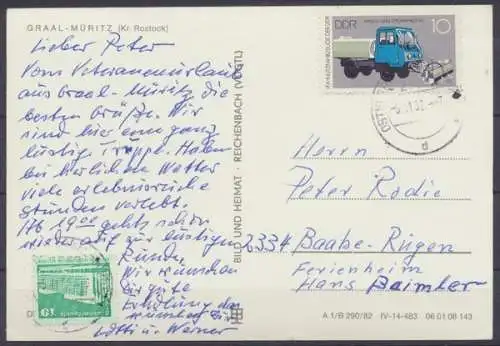 GRAAL-MÜRITZ (Kr. Rostock)
Lieber Peter
Vom Veteranenurlaub
aus Graal-Müritz die
besten Grüße. Wir
sind hier eine ganz
lustige Truppe. Haben
bei herrlichem Wetter
viele erlebnisreiche
Stunden verlebt.
Ab 19⁰⁰ gehts schon
wieder auf zur lustigen
Runde.
Wir wünschen
Dir gute
Erholung
Lotti u. Werner
BILD UND HEIMAT · REICHENBACH (VOGTL)
DDR
10
Herrn
Peter Rodie
2334 Baabe-Rügen
Ferienheim
Hans Baimler
A 1/B 290/82 IV-14-483 06 01 08 143